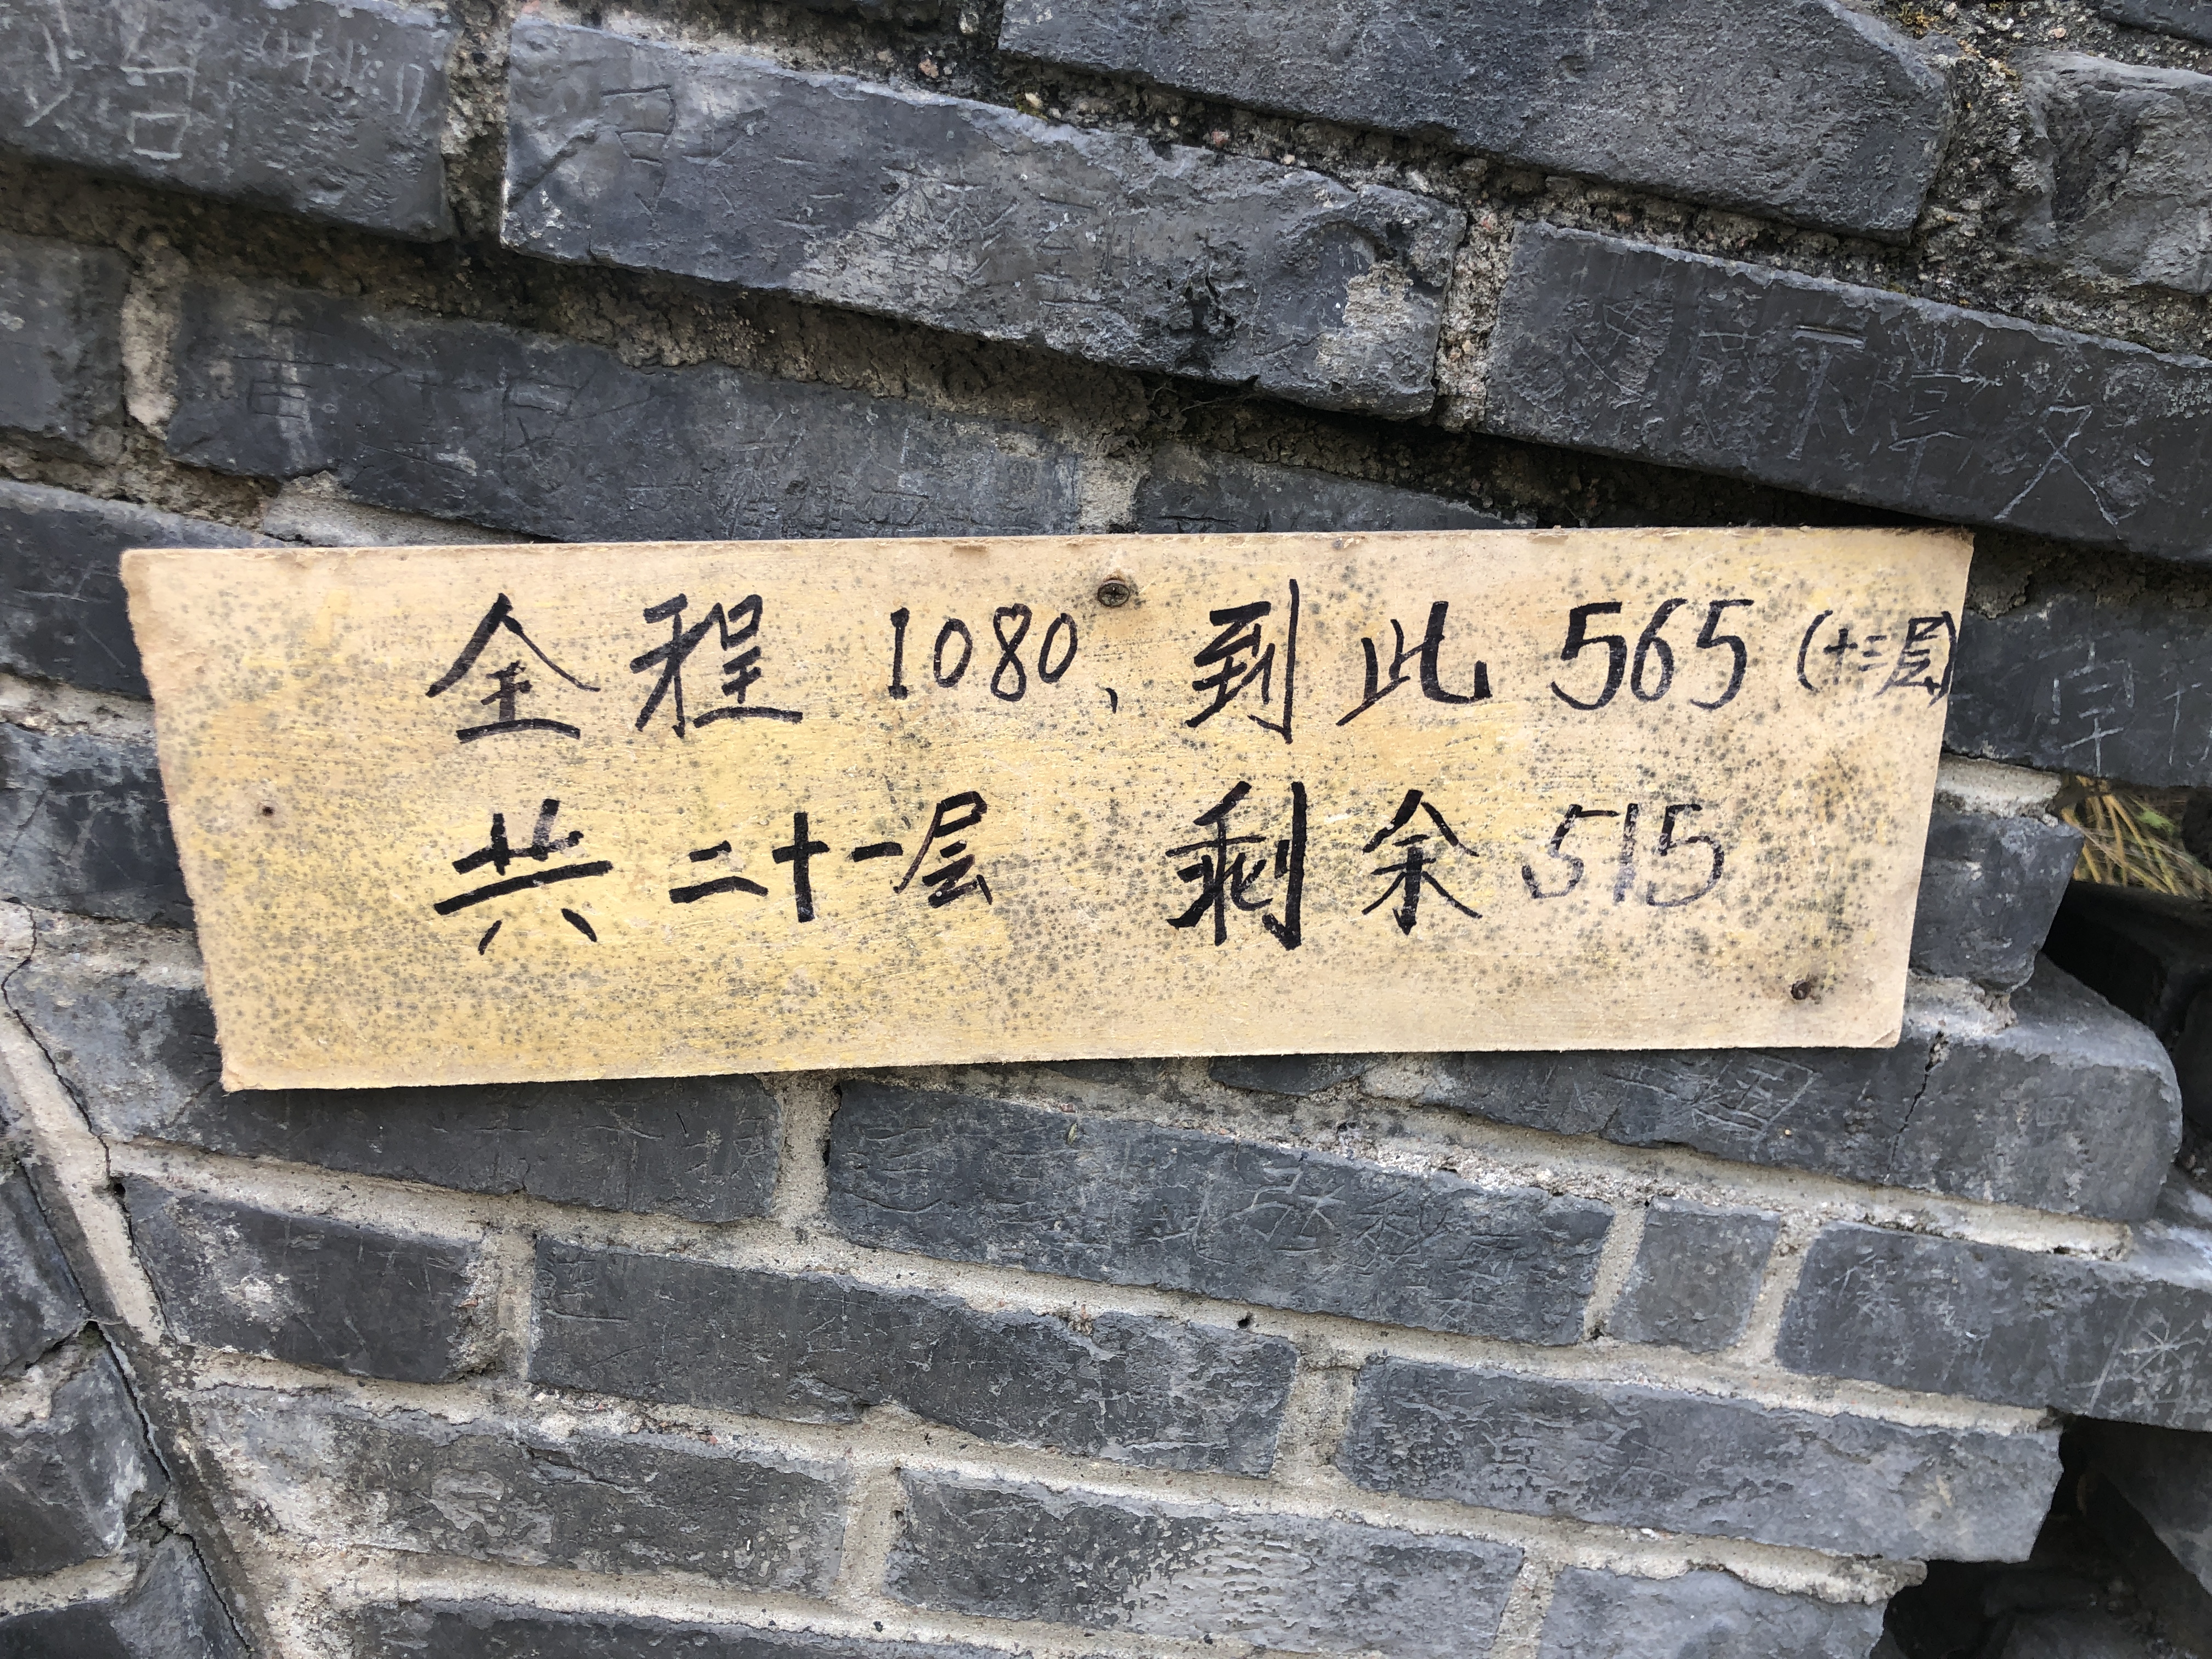 全程 1080、到此 565 (十三层)
共二十一层 剩余 515